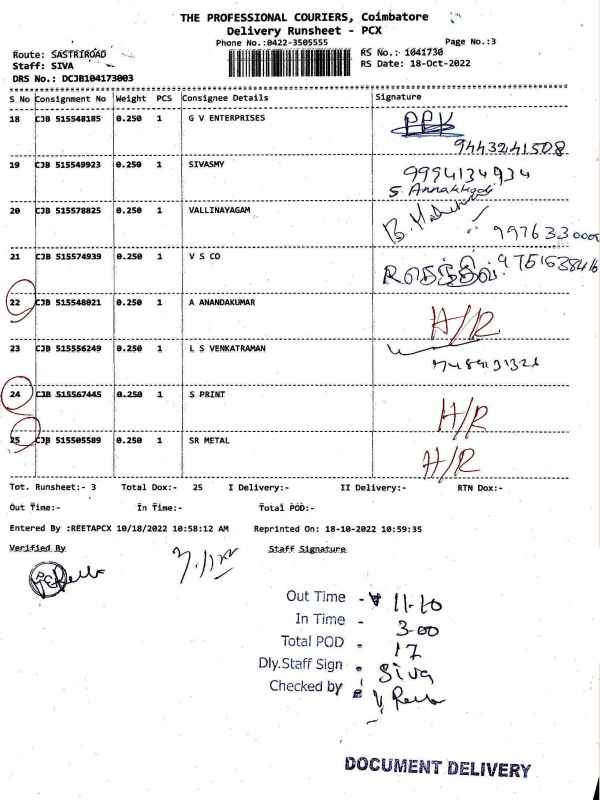 THE PROFESSIONAL COURIERS, Coimbatore
Delivery Runsheet - PCX
Phone No.:0422-3505555
Page No.:3
Route: SASTRIROAD
RS No.: 1041730
Staff: SIVA
RS Date: 18-Oct-2022
DRS No.: DCJB104173003
S No Consignment No Weight PCS Consignee Details Signature
18 CJB 515548185 0.250 1 G V ENTERPRISES PPK
9443241508
19 CJB 515549923 0.250 1 SIVASMY 9994134934
20 CJB 515578825 0.250 1 VALLINAYAGAM
21 CJB 515574939 0.250 1 V S CO 9751638416
22 CJB 515548021 0.250 1 A ANANDAKUMAR H/R
23 CJB 515556249 0.250 1 L S VENKATRAMAN
24 CJB 515567445 0.250 1 S PRINT H/R
25 CJB 515505589 0.250 1 SR METAL H/R
Tot. Runsheet:- 3 Total Dox:- 25 I Delivery:- II Delivery:- RTN Dox:-
Out Time:- In Time:- Total POD:-
Entered By :REETAPCX 10/18/2022 10:58:12 AM Reprinted On: 18-10-2022 10:59:35
Verified By Staff Signature
Out Time - 11-10
In Time - 3-00
Total POD - 17
Dly.Staff Sign - Siva
Checked by
DOCUMENT DELIVERY